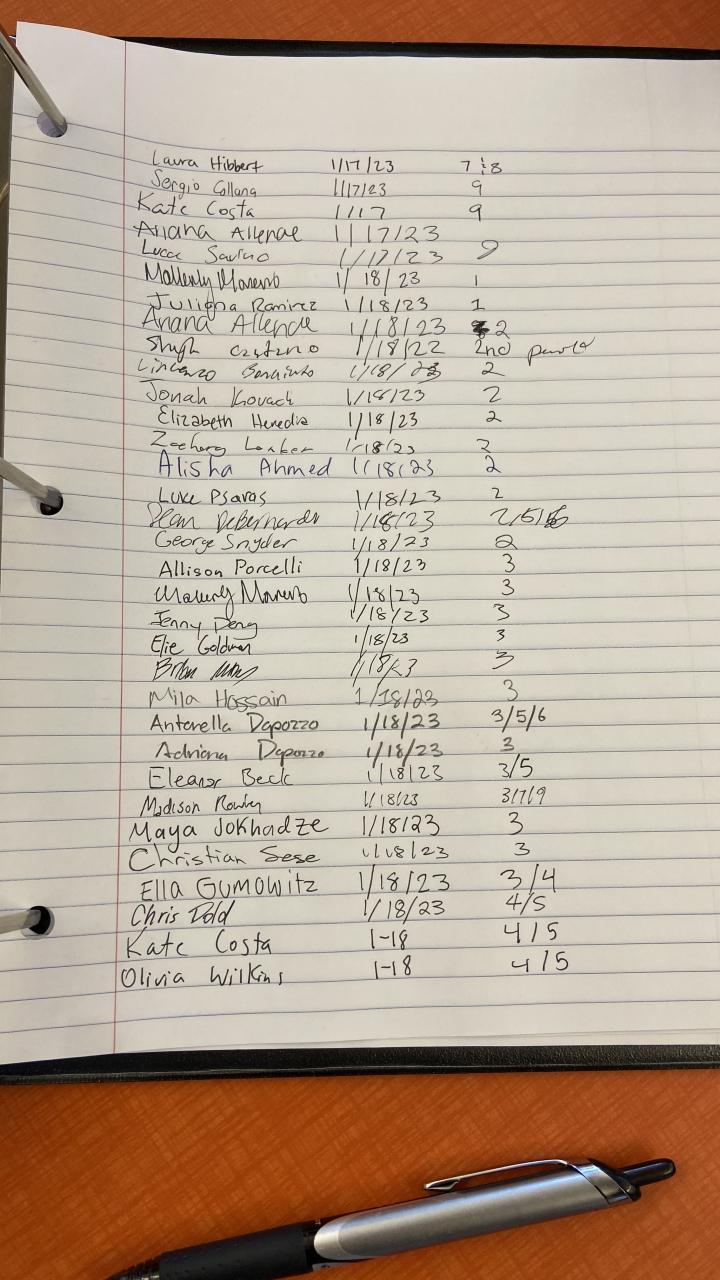 Laura Hibbert 1/17/23 7 & 8
Sergio Collana 1/17/23 9
Kate Costa 1/17 9
Ariana Allende 1/17/23
Luca Savino 1/17/23 9
1/18/23 1
Juliana Ramirez 1/18/23 1
Ariana Allende 1/18/23 2
1/18/22 2nd
1/18/23 2
Jonah Kovach 1/18/23 2
Elizabeth Heredia 1/18/23 2
Zachary 1/18/23 2
Alisha Ahmed 1/18/23 2
Luke Psaras 1/18/23 2
Dean DeBernardo 1/18/23 2/5/6
George Snyder 1/18/23 2
Allison Porcelli 1/18/23 3
1/18/23 3
Jenny Deng 1/18/23 3
Elie Goldman 1/18/23 3
Brian 1/18/23 3
Mila Hossain 1/18/23 3
Antonella Dapozzo 1/18/23 3/5/6
Adriana Dapozzo 1/18/23 3
Eleanor Beck 1/18/23 3/5
Madison 1/18/23 3/7/9
Maya Jokhadze 1/18/23 3
Christian Sese 1/18/23 3
Ella Gumowitz 1/18/23 3/4
Chris Dold 1/18/23 4/5
Kate Costa 1-18 4/5
Olivia Wilkins 1-18 4/5